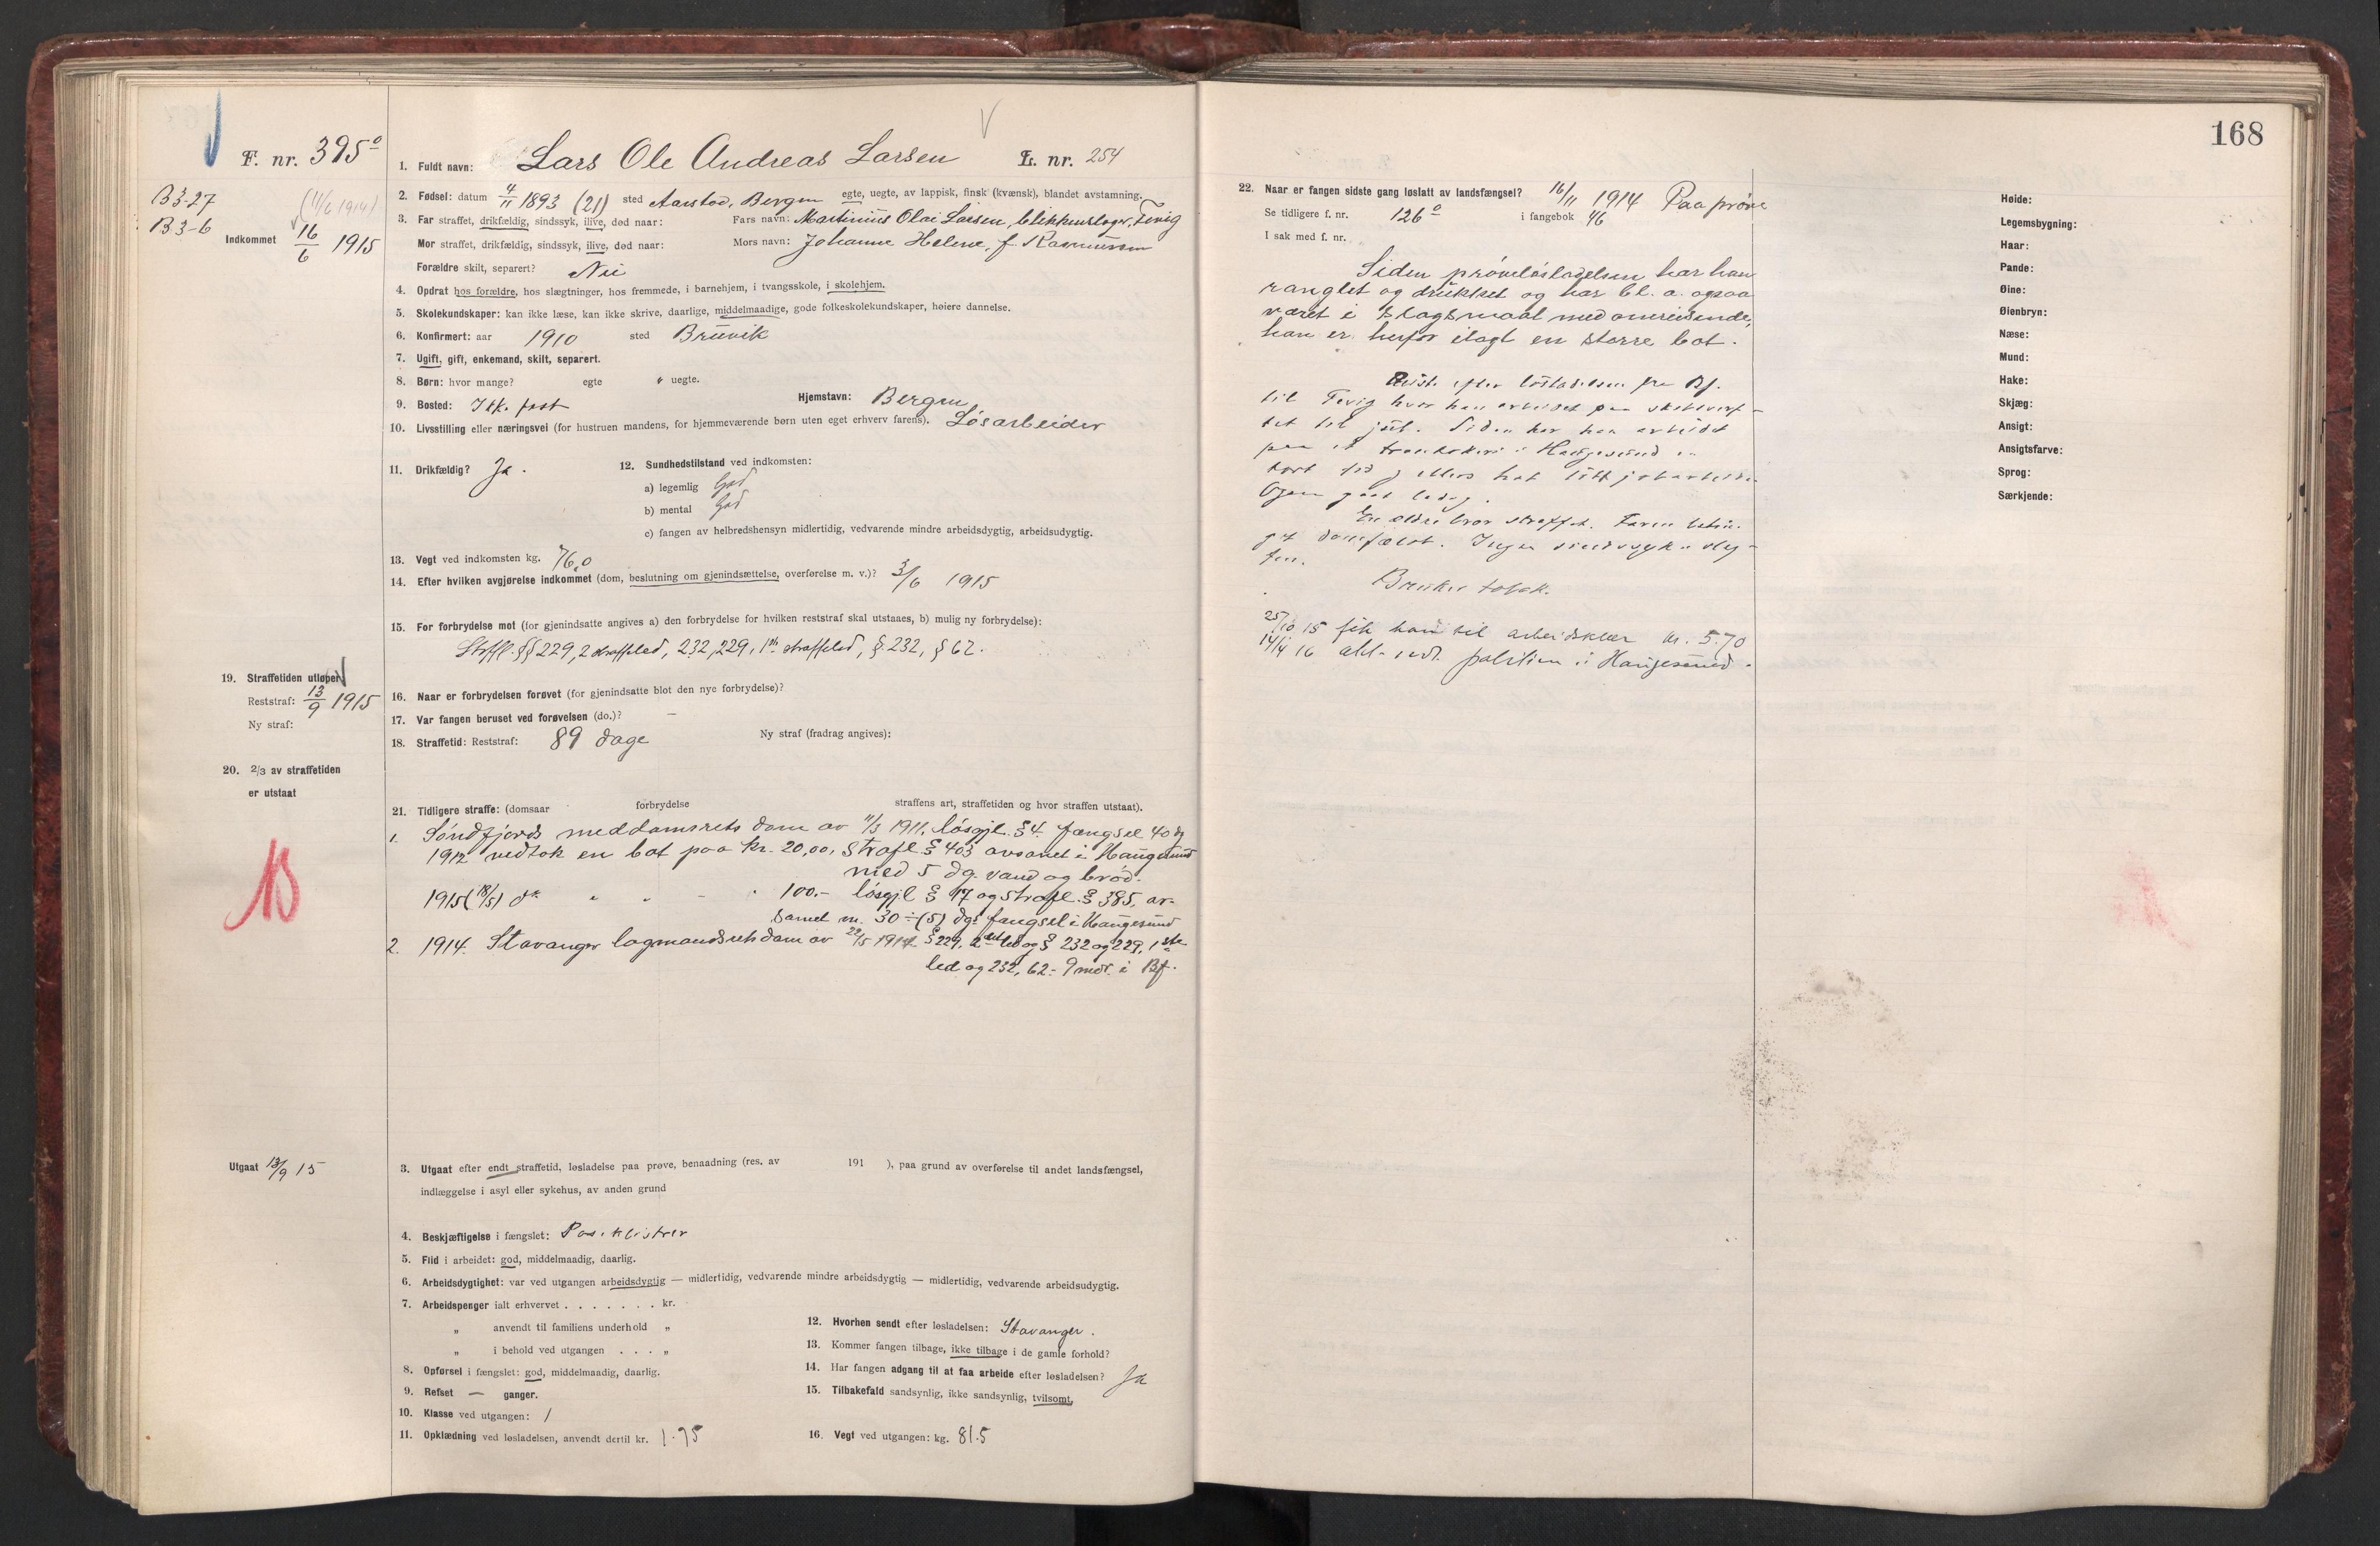 168
F. nr. 395⁰
B3-27
B3-6
(11/6 1914)
Indkommet 16/6 1915
1. Fuldt navn: Lars Ole Andreas Larsen L. nr. 254
2. Fødsel: datum 4/11 1893 (21) sted Aarstad, Bergen egte, uegte, av lappisk, finsk (kvænsk), blandet avstamning.
3. Far straffet, drikfældig, sindssyk, ilive, død naar: Fars navn: Martinius Olai Larsen, blikkenslager, Fevig
Mor straffet, drikfældig, sindssyk, ilive, død naar: Mors navn: Johanne Helene, f. Rasmussen
Forældre skilt, separert? Nei
4. Opdrat hos forældre, hos slægtninger, hos fremmede, i barnehjem, i tvangsskole, i skolehjem.
5. Skolekundskaper: kan ikke læse, kan ikke skrive, daarlige, middelmaadige, gode folkeskolekundskaper, høiere dannelse.
6. Konfirmert: aar 1910 sted Bruvik
7. Ugift, gift, enkemand, skilt, separert.
8. Børn: hvor mange? egte " uegte.
9. Bosted: Ikke fast Hjemstavn: Bergen
10. Livsstilling eller næringsvei (for hustruen mandens, for hjemmeværende børn uten eget erhverv farens). Løsarbeider
11. Drikfældig? Ja.
12. Sundhedstilstand ved indkomsten:
a) legemlig God
b) mental God
c) fangen av helbredshensyn midlertidig, vedvarende mindre arbeidsdygtig, arbeidsudygtig.
13. Vegt ved indkomsten kg. 76,0
14. Efter hvilken avgjørelse indkommet (dom, beslutning om gjenindsættelse, overførelse m. v.)? 3/6 1915
15. For forbrydelse mot (for gjenindsatte angives a) den forbrydelse for hvilken reststraf skal utstaaes, b) mulig ny forbrydelse):
Strfl. §§ 229, 2 straffeled, 232, 229, 1ste straffeled, §. 232, § 62.
19. Straffetiden utløper
Reststraf: 13/9 1915
Ny straf:
16. Naar er forbrydelsen forøvet (for gjenindsatte blot den nye forbrydelse)?
17. Var fangen beruset ved forøvelsen (do.)? —
18. Straffetid: Reststraf: 89 dage Ny straf (fradrag angives):
20. 2/3 av straffetiden
er utstaat
21. Tidligere straffe: (domsaar forbrydelse straffens art, straffetiden og hvor straffen utstaat).
1. Søndfjords meddomsrets dom av 11/3 1911. løsgjl. § 4. fængsel 40 dg
1912 vedtok en bot paa kr. 20,00, Strafl § 403 avsonet i Haugesund
med 5 dg. vand og brød.
1915 (18/5) do " " - " 100.- løsgjl § 17 og Strafl. § 385, av-
sonet m. 30 ÷ (5) dgs fængsel i Haugesund
2. 1914. Stavanger lagmandsrets dom av 22/5 1914 § 229, 2det led og § 232 og 229, 1ste
led og 232, 62 - 9 mdr. i Bf.
Utgaat 13/9 15
3. Utgaat efter endt straffetid, løsladelse paa prøve, benaadning (res. av 191 ), paa grund av overførelse til andet landsfængsel,
indlæggelse i asyl eller sykehus, av anden grund
4. Beskjæftigelse i fængslet: Poseklistrer
5. Flid i arbeidet: god, middelmaadig, daarlig.
6. Arbeidsdygtighet: var ved utgangen arbeidsdygtig — midlertidig, vedvarende mindre arbeidsdygtig — midlertidig, vedvarende arbeidsudygtig.
7. Arbeidspenger ialt erhvervet . . . . . . . kr.
„ anvendt til familiens underhold „
„ i behold ved utgangen . . . „
8. Opførsel i fængslet: god, middelmaadig, daarlig.
9. Refset — ganger.
10. Klasse ved utgangen: 1
11. Opklædning ved løsladelsen, anvendt dertil kr. 1.75
12. Hvorhen sendt efter løsladelsen: Stavanger.
13. Kommer fangen tilbage, ikke tilbage i de gamle forhold?
14. Har fangen adgang til at faa arbeide efter løsladelsen? Ja
15. Tilbakefald sandsynlig, ikke sandsynlig, tvilsomt.
16. Vegt ved utgangen: kg. 81.5
22. Naar er fangen sidste gang løslatt av landsfængsel? 16/11 1914 Paa prøve
Se tidligere f. nr. 126⁰ i fangebok 46
I sak med f. nr.
Siden prøveløsladelsen har han
ranglet og drukket og har bl. a. ogsaa
været i slagsmaal med omreisende,
han er herfor ilagt en større bot.
Reiste efter løsladelsen fra Bf.
til Fevig hvor han arbeidet paa skibsverf-
tet til jul. Siden har han arbeidet
paa et trankokeri i Haugesund en
kort tid
En ældre bror straffet. Faren
domfældt. Ingen sindssyke i sleg-
ten.
Bruker tobak.
25/10 15 fik han til arbeidsklær kr. 5.70
14/4 16 politien i Haugesund.
Høide:
Legemsbygning:
Haar:
Pande:
Øine:
Øienbryn:
Næse:
Mund:
Hake:
Skjæg:
Ansigt:
Ansigtsfarve:
Sprog:
Særkjende: